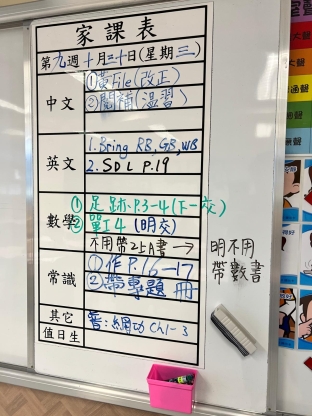 家課表
第九週十月三十日(星期三)
中文
①黃File(改正)
②閱補(溫習)
英文
1. Bring RB, GB, WB
2. SDL P.19
數學
① 足跡P.3-4(下一交)
② 單工4 (明交)
不用帶25A書 →
明不用
帶數書
常識
①作P.16-17
②帶專題冊
其它
普:網功 Ch1-3
值日生